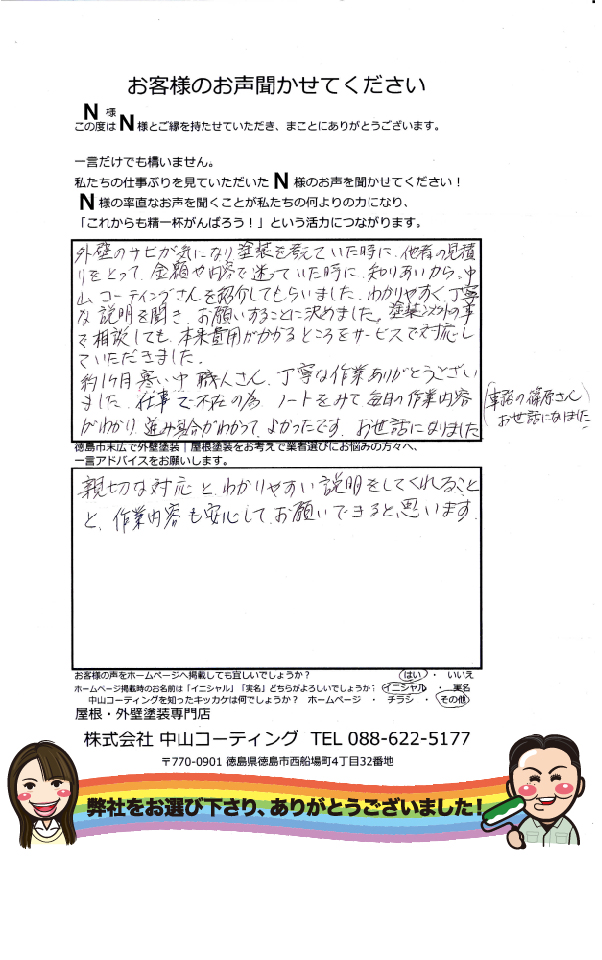 お客様のお声聞かせてください
N 様
この度は N 様とご縁を持たせていただき、まことにありがとうございます。
一言だけでも構いません。
私たちの仕事ぶりを見ていただいた N 様のお声を聞かせてください！
N 様の率直なお声を聞くことが私たちの何よりの力になり、
「これからも精一杯がんばろう！」という活力につながります。
外壁のサビが気になり塗装を考えていた時に、他者の見積
りをとって、金額や内容で迷っていた時に、知りあいから、中
山コーティングさんを紹介してもらいました。わかりやすく、丁寧
な説明を聞き、お願いすることに決めました。塗装以外の事
で相談しても、本来費用がかかるところをサービスで対応し
ていただきました。
約1ヶ月寒い中、職人さん、丁寧な作業ありがとうござい
ました。仕事で不在の為、ノートをみて毎日の作業内容
がわかり、進み具合がわかって、よかったです。お世話になりました
(事務の篠原さん
お世話になりました)
徳島市末広で外壁塗装｜屋根塗装をお考えで業者選びにお悩みの方々へ、
一言アドバイスをお願いします。
親切な対応と、わかりやすい説明をしてくれること
と、作業内容も安心して、お願いできると、思います。
お客様の声をホームページへ掲載しても宜しいでしょうか？ はい ・ いいえ
ホームページ掲載時のお名前は「イニシャル」「実名」どちらがよろしいでしょうか？ イニシャル ・ 実名
中山コーティングを知ったキッカケは何でしょうか？ ホームページ ・ チラシ ・ その他
屋根・外壁塗装専門店
株式会社 中山コーティング TEL 088-622-5177
〒770-0901 徳島県徳島市西船場町4丁目32番地
弊社をお選び下さり、ありがとうございました！